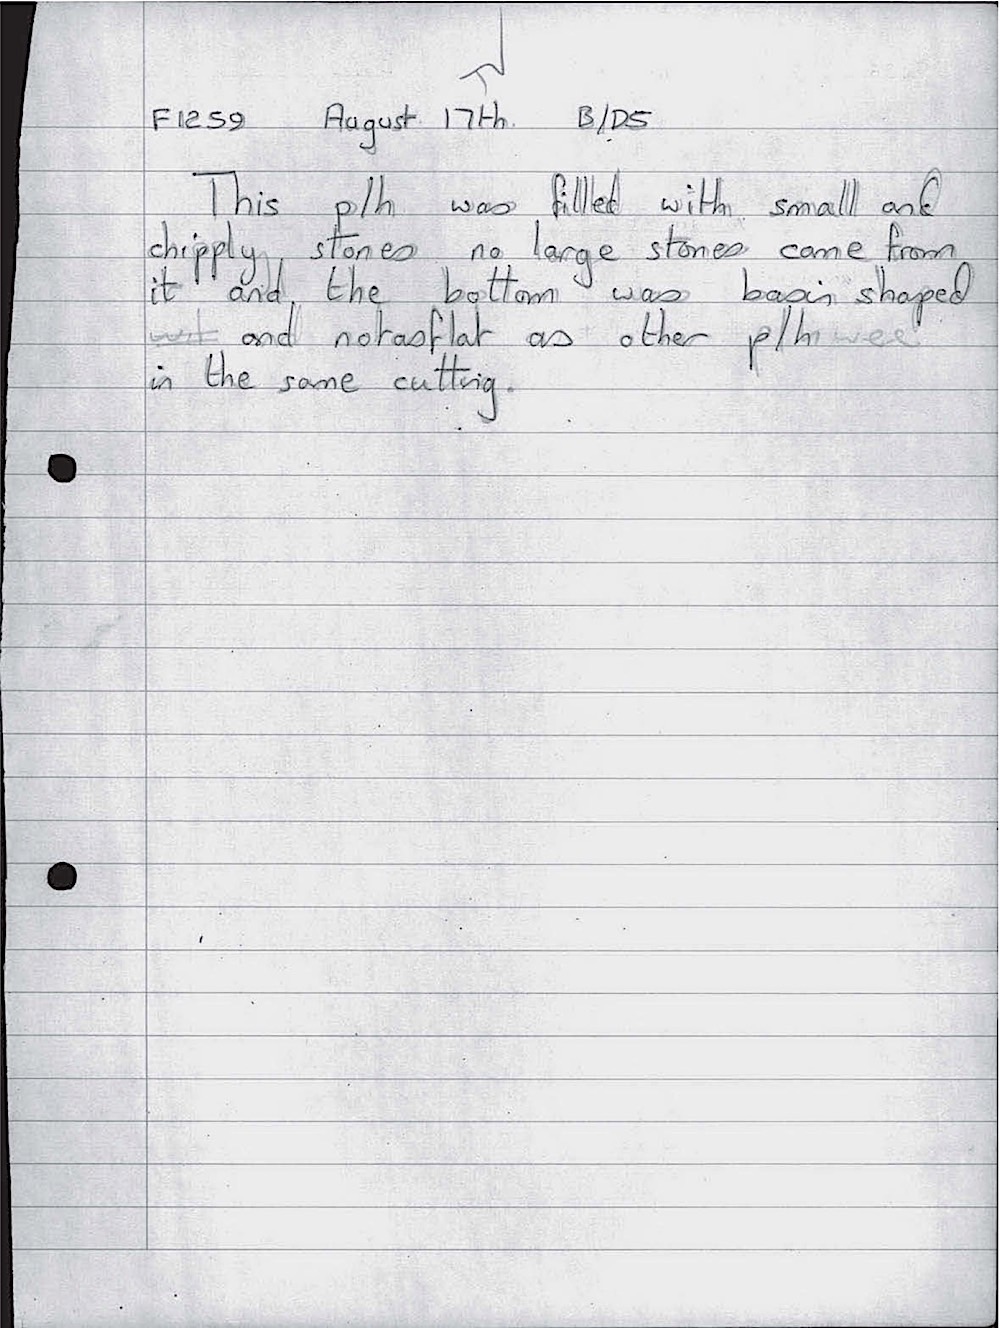 F1259 August 17th. B/D5
This p/h was filled with small and
chipply stones no large stones came from
it and the bottom was basin shaped
and not as flat as other p/h
in the same cutting.